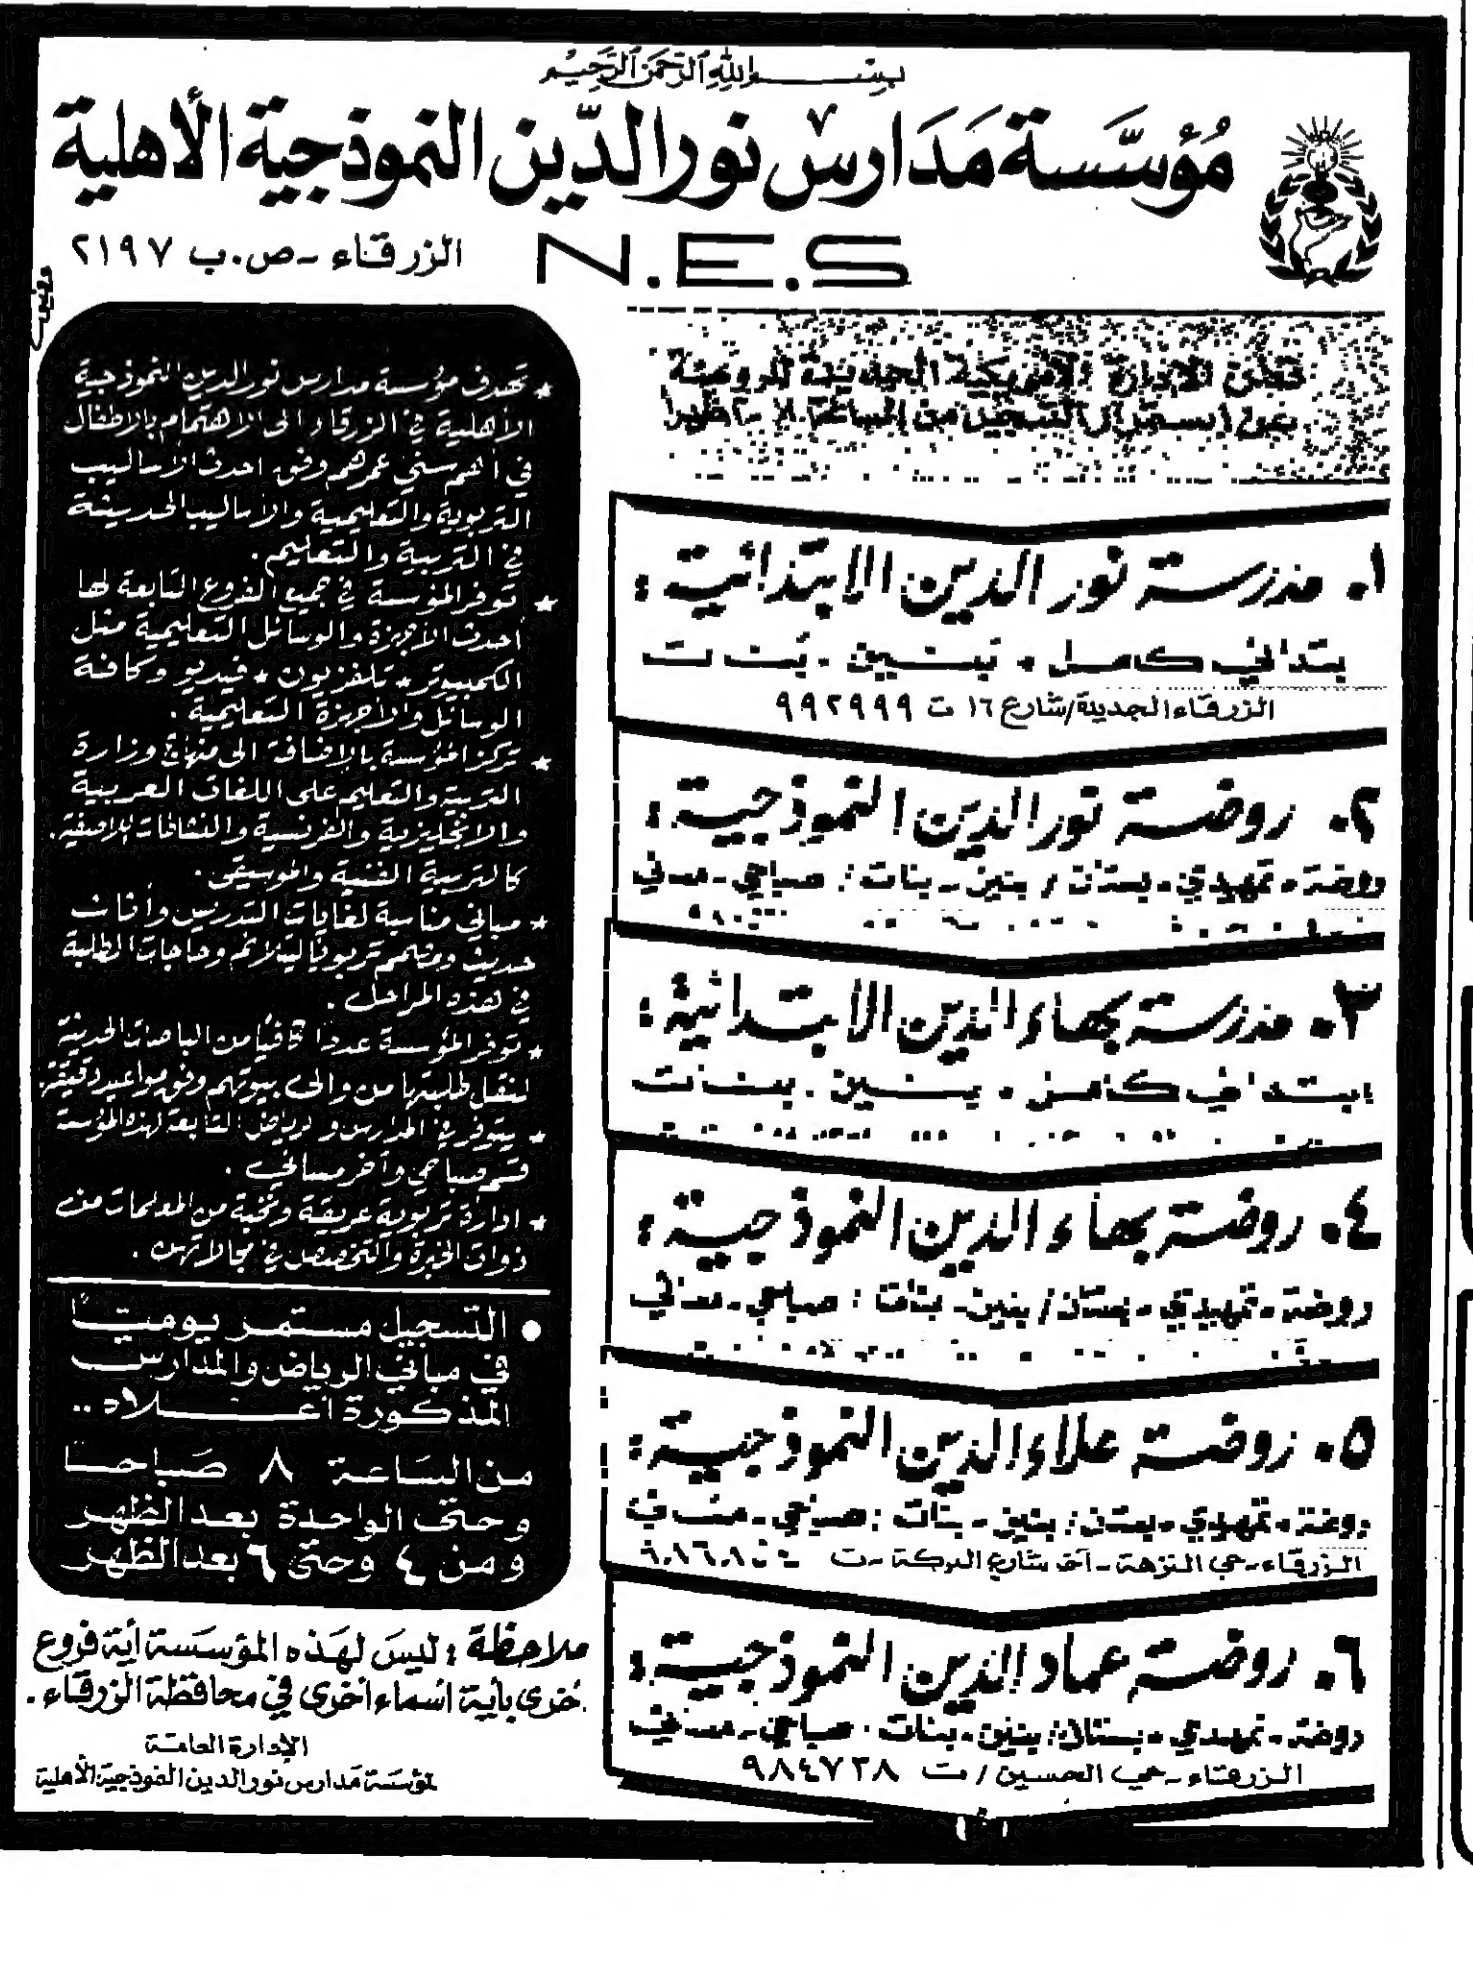 بسم الله الرحمن الرحيم
مؤسسة مدارس نور الدين النموذجية الأهلية
N.E.S
الزرقاء - ص.ب ٢١٩٧
١. مدرسة نور الدين الابتدائية :
ابتدائي كامل . بنين . بنات
الزرقاء الجديدة / شارع ١٦ ت ٩٩٢٩٩٩
٢. روضة نور الدين النموذجية :
روضة - تمهيدي - بستان / بنين - بنات : صباحي - مسائي
٣. مدرسة بهاء الدين الابتدائية :
ابتدائي كامل . بنين . بنات
٤. روضة بهاء الدين النموذجية :
روضة - تمهيدي - بستان / بنين - بنات : صباحي - مسائي
٥. روضة علاء الدين النموذجية :
روضة - تمهيدي - بستان / بنين - بنات : صباحي - مسائي
الزرقاء - حي النزهة - آخر شارع البركة - ت
٦. روضة عماد الدين النموذجية :
روضة - تمهيدي - بستان / بنين - بنات : صباحي - مسائي
الزرقاء - حي الحسين / ت ٩٨٤٧٣٨
* تهدف مؤسسة مدارس نور الدين النموذجية
الأهلية في الزرقاء الى الاهتمام بالاطفال
في أهم سني عمرهم وفق احدث الأساليب
التربوية والتعليمية والأساليب الحديثة
في التربية والتعليم .
* توفر المؤسسة في جميع الفروع التابعة لها
أحدث الأجهزة والوسائل التعليمية مثل
الكمبيوتر * تلفزيون * فيديو وكافة
الوسائل والأجهزة التعليمية .
* تركز المؤسسة بالإضافة الى منهاج وزارة
التربية والتعليم على اللغات العربية
والانجليزية والفرنسية والنشاطات اللاصفية
كالتربية الفنية والموسيقى .
* مباني مناسبة لغايات التدريس وأثاث
حديث ومصمم تربويا ليتلائم وحاجات الطلبة
في هذه المراحل .
* توفر المؤسسة عددا كافيا من الباصات الحديثة
لنقل طلبتها من والى بيوتهم وفق مواعيد دقيقة .
* يتوفر في المدارس والرياض التابعة لهذه المؤسسة
قسم صباحي وآخر مسائي .
* ادارة تربوية عريقة ونخبة من المعلمات من
ذوات الخبرة والتخصص في مجالاتهن .
● التسجيل مستمر يوميًا
في مباني الرياض والمدارس
المذكورة أعلاه ..
من الساعة ٨ صباحا
وحتى الواحدة بعد الظهر
ومن ٤ وحتى ٦ بعد الظهر
ملاحظة : ليس لهذه المؤسسة أية فروع
أخرى بأية أسماء أخرى في محافظة الزرقاء .
الإدارة العامة
لمؤسسة مدارس نور الدين النموذجية الأهلية